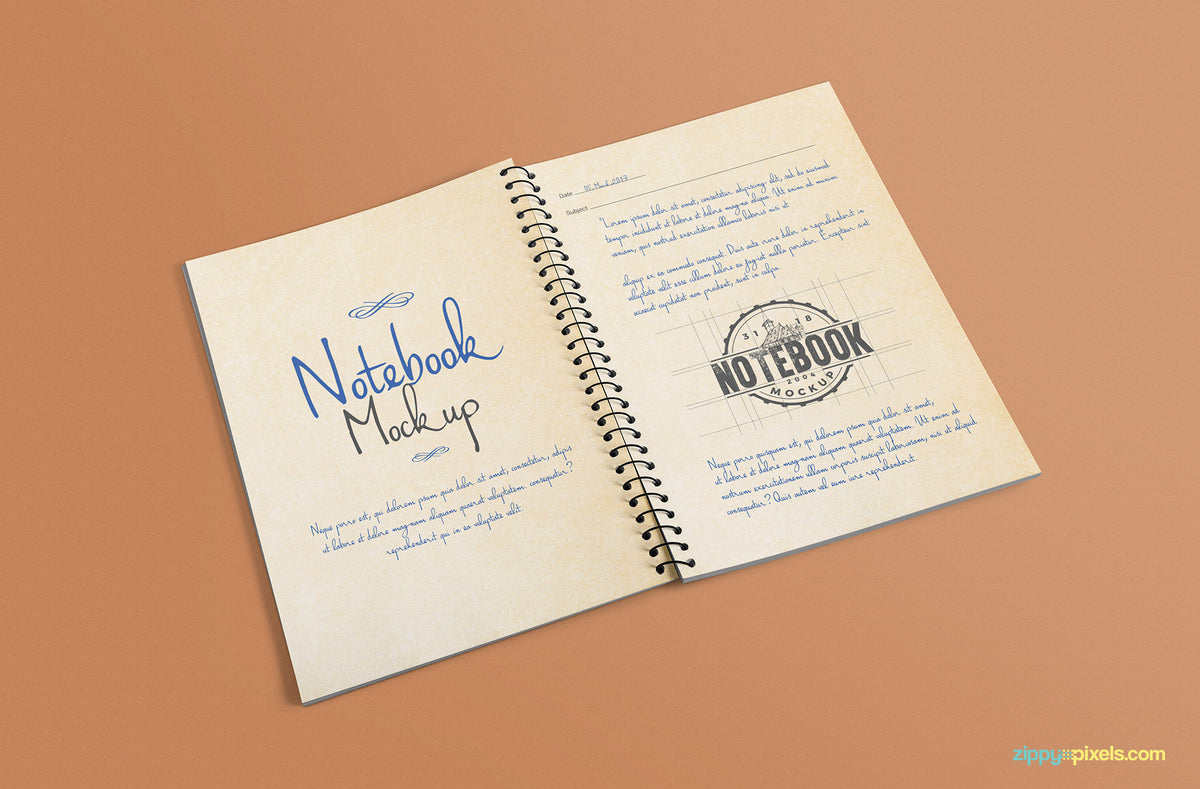 Notebook
Mockup
Neque porro est, qui dolorem psum quia dolor sit amet, consectetur, adipis
ut labore et dolore mag-nam aliquam quaerat voluptatem. consequatur?
reprehenderit qui in ea voluptate velit.
Date 05 Mard 2017
Subject
"Lorem ipsum dolor sit amet, consectetur adipiscing elit, sed do eiusmod
tempor incididunt ut labore et dolore mag-na aliqua. Ut enim ad minim
veniam, quis nostrud exercitation ullamco laboris nisi ut
aliquip ex ea commodo consequat. Duis aute irure dolor in reprehenderit in
voluptate velit esse cillum dolore eu fug-iat nulla pariatur. Excepteur sint
occaecat cupidatat non proident, sunt in culpa.
31 18
NOTEBOOK
2004
MOCKUP
Neque porro quisquam est, qui dolorem psum quia dolor sit amet,
ut labore et dolore mag-nam aliquam quaerat voluptatem. Ut enim ad
nostrum exercitationem ullam corporis suscipit laboriosam, nisi ut aliquid
consequatur? Quis autem vel eum iure reprehenderit.
zippypixels.com